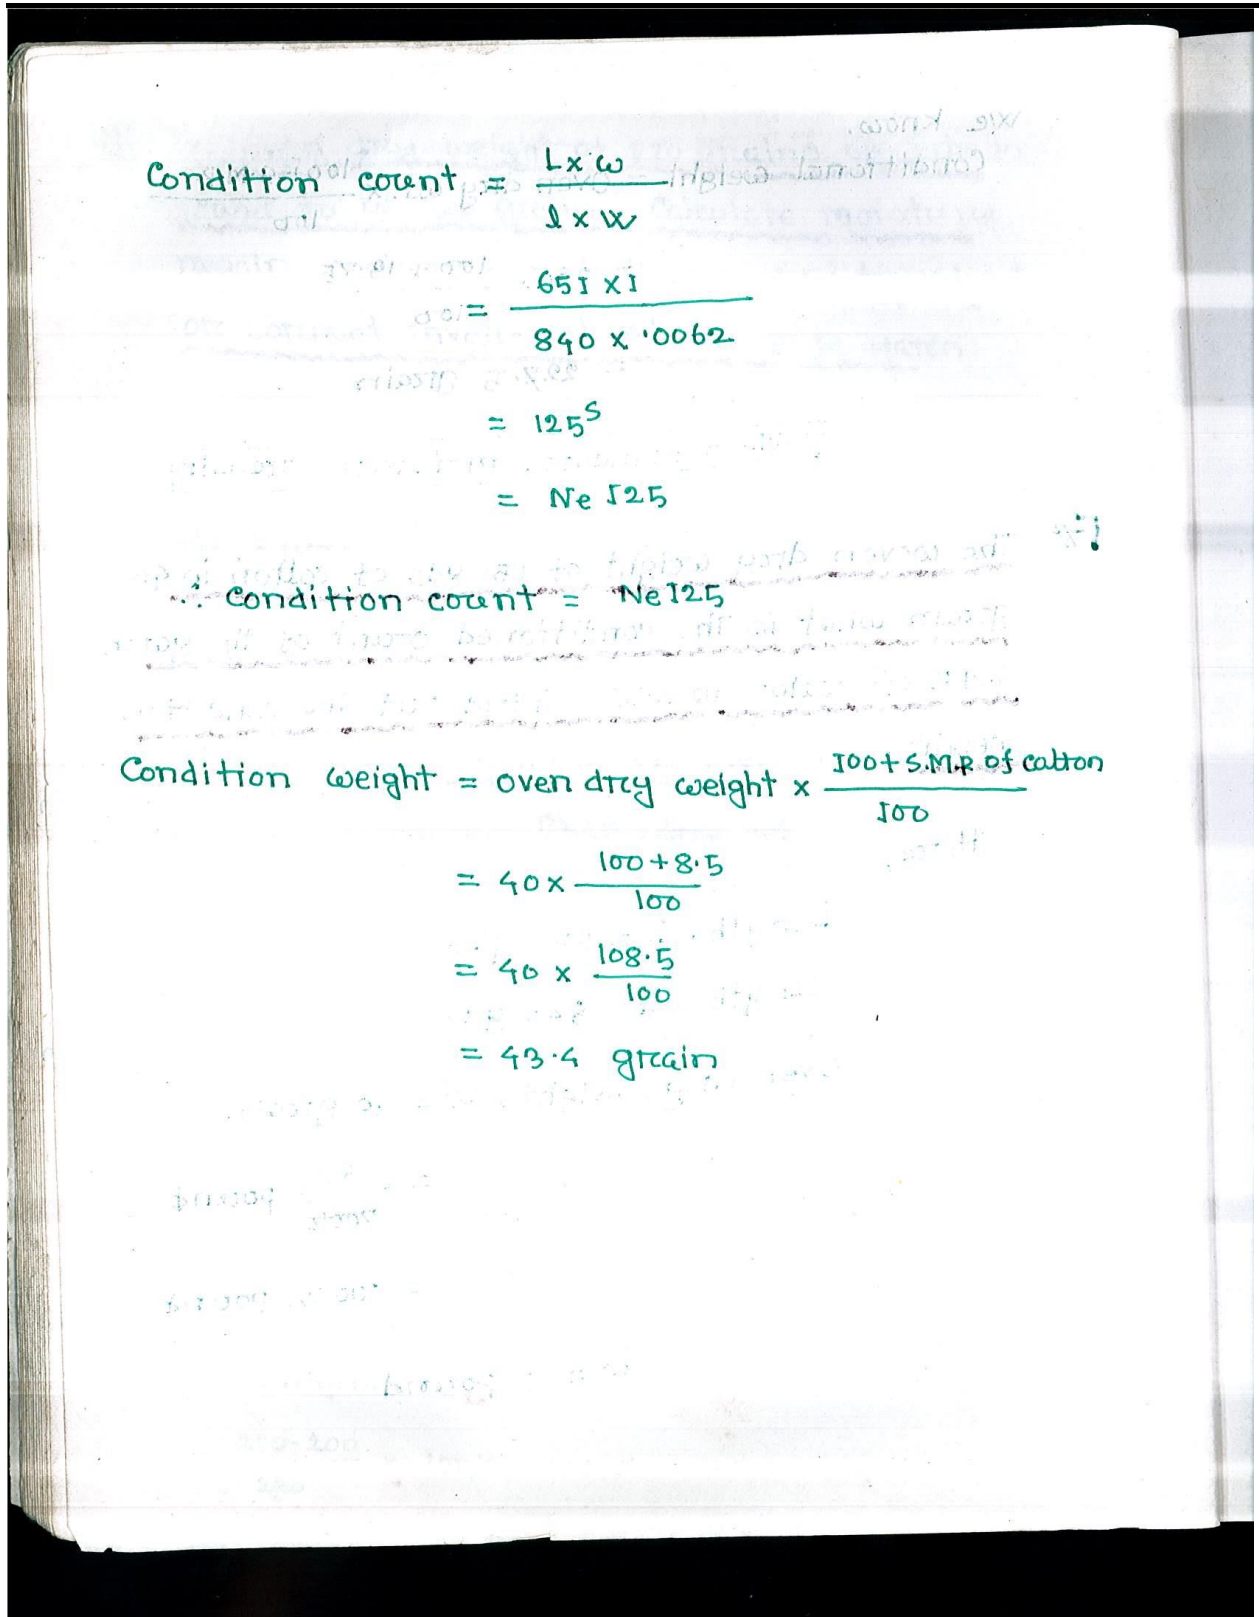 Condition count = L x w / l x W
= 651 x 1 / 840 x .0062
= 125ˢ
= Ne 125
∴ Condition count = Ne 125
Condition weight = oven dry weight x 100 + S.M.R of catton / 100
= 40 x 100 + 8.5 / 100
= 40 x 108.5 / 100
= 43.4 grain